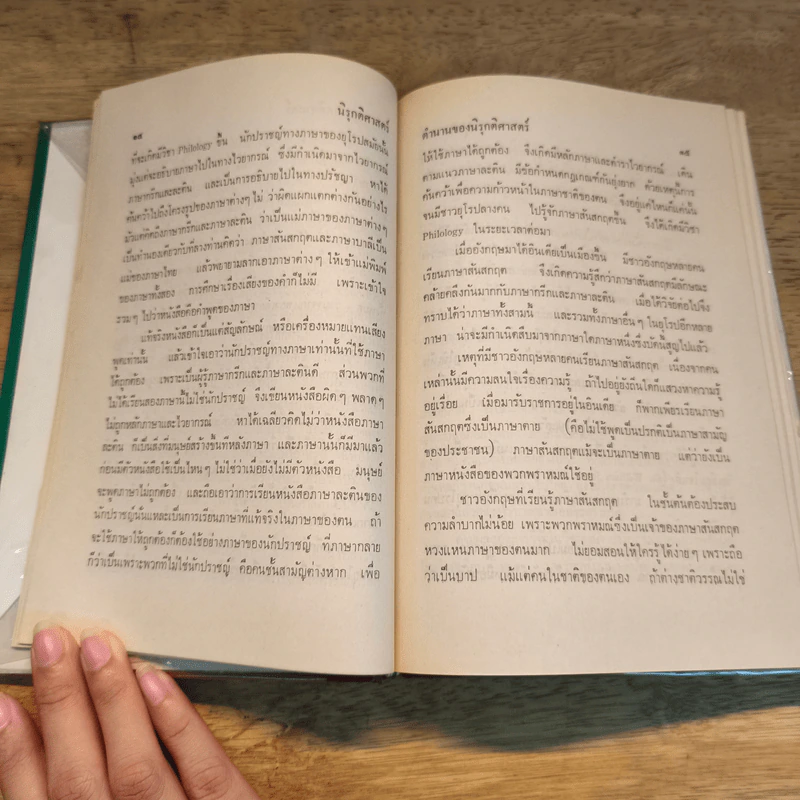 ๑๘
นิรุกติศาสตร์
ที่จะเกิดมีวิชา Philology ขึ้น นักปราชญ์ทางภาษาของยุโรปสมัยนั้น
มุ่งแต่จะอธิบายภาษาไปในทางไวยากรณ์ ซึ่งมีกำเนิดมาจากไวยากรณ์
ภาษากรีกและละติน และเป็นการอธิบายไปในทางปรัชญา หาได้
ค้นคว้าไปถึงโครงรูปของภาษาต่างๆ ไม่ ว่าผิดแผกแตกต่างกันอย่างไร
มัวแต่คิดถึงภาษากรีกและภาษาละติน ว่าเป็นแม่ภาษาของภาษาต่างๆ
เป็นทำนองเดียวกับที่ลางท่านคิดว่า ภาษาสันสกฤตและภาษาบาลีเป็น
แม่ของภาษาไทย แล้วพยายามลากเอาภาษาต่างๆ ให้เข้าแม่พิมพ์
ของภาษาทั้งสอง การศึกษาเรื่องเสียงของคำก็ไม่มี เพราะเข้าใจ
รวมๆ ไปว่าหนังสือคือคำพูดของภาษา
แท้จริงหนังสือก็เป็นแต่สัญลักษณ์ หรือเครื่องหมายแทนเสียง
พูดเท่านั้น แล้วเข้าใจเอาว่านักปราชญ์ทางภาษาเท่านั้นที่ใช้ภาษา
ได้ถูกต้อง เพราะเป็นผู้รู้ภาษากรีกและภาษาละตินดี ส่วนพวกที่
ไม่ได้เรียนสองภาษานี้ไม่ใช่นักปราชญ์ จึงเขียนหนังสือผิดๆ พลาดๆ
ไม่ถูกหลักภาษาและไวยากรณ์ หาได้เฉลียวคิดไม่ว่าหนังสือภาษา
ละติน ก็เป็นสิ่งที่มนุษย์สร้างขึ้นทีหลังภาษา และภาษานั้นก็มีมาแล้ว
ก่อนมีตัวหนังสือใช้เป็นไหนๆ ไม่ใช่ว่าเมื่อยังไม่มีตัวหนังสือ มนุษย์
จะพูดภาษาไม่ถูกต้อง และถือเอาว่าการเรียนหนังสือภาษาละตินของ
นักปราชญ์นั่นแหละเป็นการเรียนภาษาที่แท้จริงในภาษาของตน ถ้า
จะใช้ภาษาให้ถูกต้องก็ต้องใช้อย่างภาษาของนักปราชญ์ ที่ภาษากลาย
ก็ว่าเป็นเพราะพวกที่ไม่ใช่นักปราชญ์ คือคนชั้นสามัญต่างหาก เพื่อ
ตำนานของนิรุกติศาสตร์
๑๙
ให้ใช้ภาษาได้ถูกต้อง จึงเกิดมีหลักภาษาและตำราไวยากรณ์ เดิน
ตามแนวภาษาละติน มีข้อกำหนดกฎเกณฑ์กันยุ่งยาก ด้วยเหตุนี้การ
ค้นคว้าเพื่อความก้าวหน้าในภาษาชาติของตน จึงอยู่แค่ไหนก็แค่นั้น
จนมีชาวยุโรปลางคน ไปรู้จักภาษาสันสกฤตขึ้น จึงได้เกิดมีวิชา
Philology ในระยะเวลาต่อมา
เมื่ออังกฤษมาได้อินเดียเป็นเมืองขึ้น มีชาวอังกฤษหลายคน
เรียนภาษาสันสกฤต จึงเกิดความรู้สึกว่าภาษาสันสกฤตมีลักษณะ
คล้ายคลึงกันมากกับภาษากรีกและภาษาละติน เมื่อได้วิจัยต่อไปจึง
ทราบได้ว่าภาษาทั้งสามนี้ และรวมทั้งภาษาอื่นๆ ในยุโรปอีกหลาย
ภาษา น่าจะมีกำเนิดสืบมาจากภาษาใดภาษาหนึ่งซึ่งบัดนี้สูญไปแล้ว
เหตุที่มีชาวอังกฤษหลายคนเรียนภาษาสันสกฤต เนื่องจากคน
เหล่านั้นมีความสนใจเรื่องความรู้ ถ้าไปอยู่ยังถิ่นใดก็แสวงหาความรู้
อยู่เรื่อย เมื่อมารับราชการอยู่ในอินเดีย ก็พากเพียรเรียนภาษา
สันสกฤตซึ่งเป็นภาษาตาย (คือไม่ใช้พูดเป็นปรกติเป็นภาษาสามัญ
ของประชาชน) ภาษาสันสกฤตแม้จะเป็นภาษาตาย แต่ว่ายังเป็น
ภาษาหนังสือของพวกพราหมณ์ใช้อยู่
ชาวอังกฤษที่เรียนรู้ภาษาสันสกฤต ในชั้นต้นต้องประสบ
ความลำบากไม่น้อย เพราะพวกพราหมณ์ซึ่งเป็นเจ้าของภาษาสันสกฤต
หวงแหนภาษาของตนมาก ไม่ยอมสอนให้ใครรู้ได้ง่ายๆ เพราะถือ
ว่าเป็นบาป แม้แต่คนในชาติของตนเอง ถ้าต่างชาติวรรณไม่ใช่